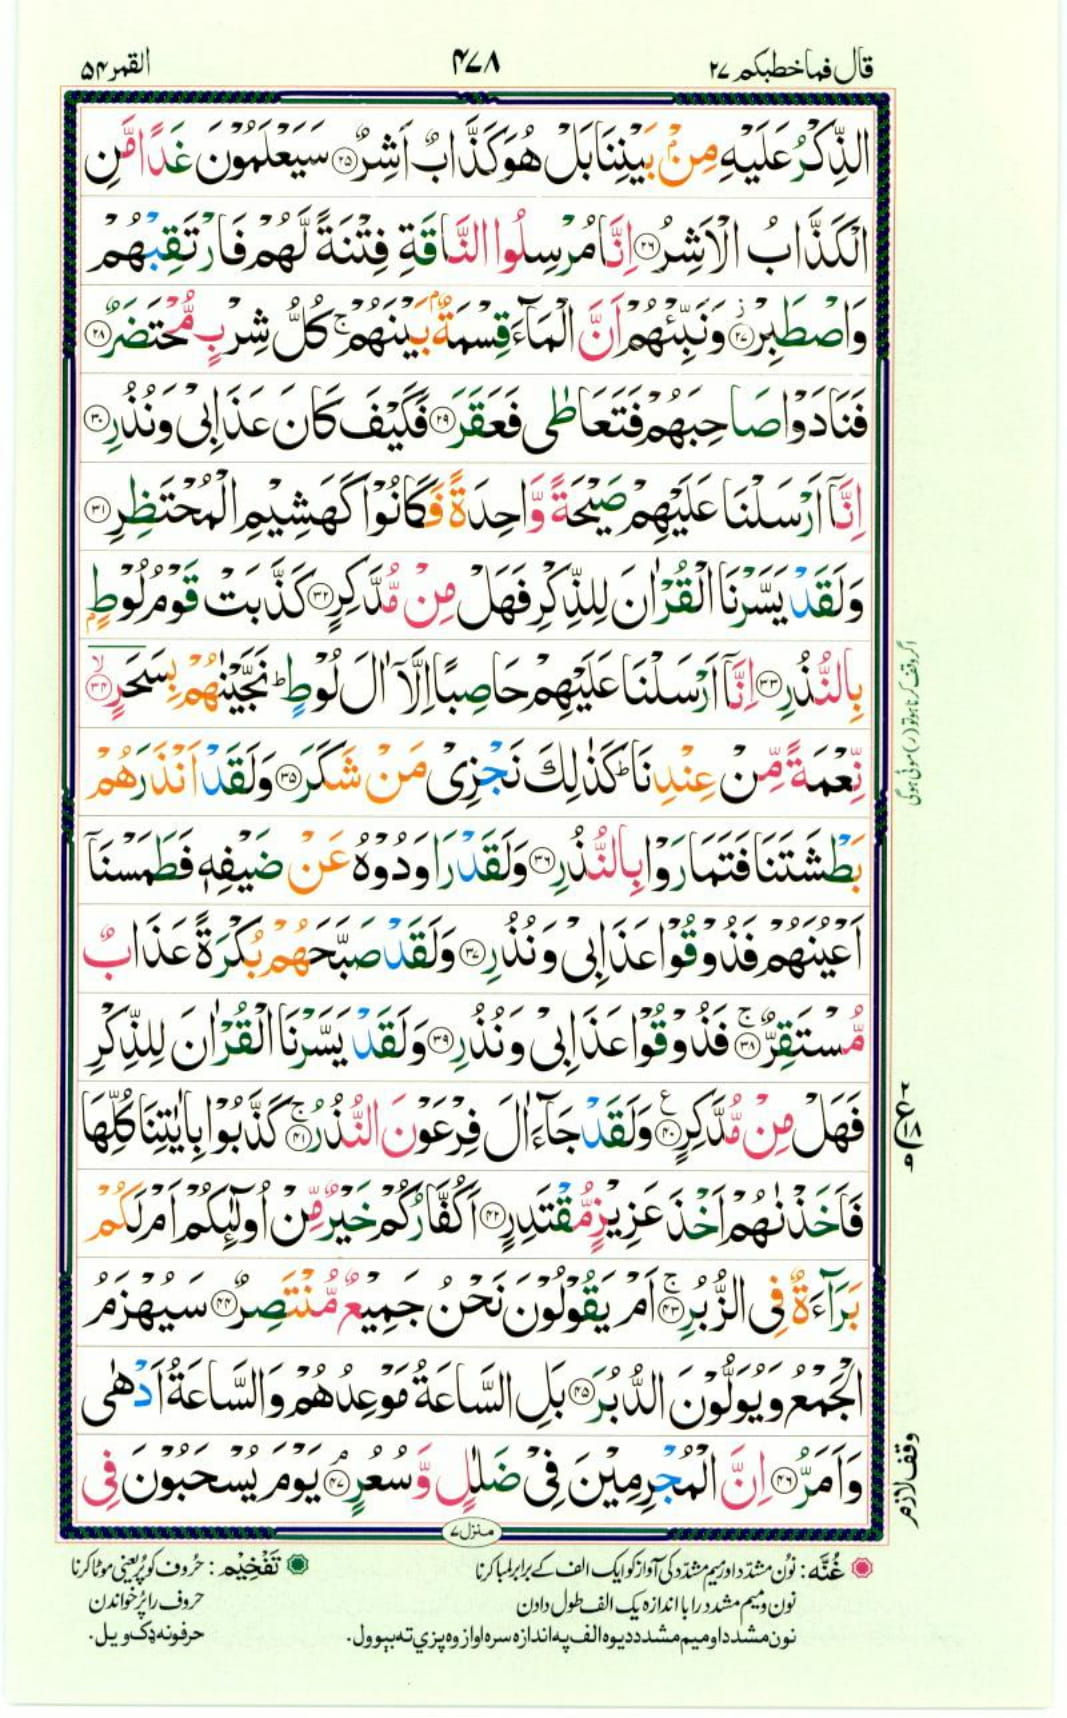 قال فماخطبكم ۲۷
۴۷۸
القمر ۵۴
الذِّكْرُ عَلَيْهِ مِنْۢ بَيْنِنَا بَلْ هُوَ كَذَّابٌ اَشِرٌ ۝۲۵ سَيَعْلَمُوْنَ غَدًا مَّنِ
الْكَذَّابُ الْاَشِرُ ۝۲۶ اِنَّا مُرْسِلُوا النَّاقَةِ فِتْنَةً لَّهُمْ فَارْتَقِبْهُمْ
وَاصْطَبِرْ ۝۲۷ وَنَبِّئْهُمْ اَنَّ الْمَآءَ قِسْمَةٌۢ بَيْنَهُمْ ۚ كُلُّ شِرْبٍ مُّحْتَضَرٌ ۝۲۸
فَنَادَوْا صَاحِبَهُمْ فَتَعَاطٰى فَعَقَرَ ۝۲۹ فَكَيْفَ كَانَ عَذَابِىْ وَنُذُرِ ۝۳۰
اِنَّاۤ اَرْسَلْنَا عَلَيْهِمْ صَيْحَةً وَّاحِدَةً فَكَانُوْا كَهَشِيْمِ الْمُحْتَظِرِ ۝۳۱
وَلَقَدْ يَسَّرْنَا الْقُرْاٰنَ لِلذِّكْرِ فَهَلْ مِنْ مُّدَّكِرٍ ۝۳۲ كَذَّبَتْ قَوْمُ لُوْطٍۭ
بِالنُّذُرِ ۝۳۳ اِنَّاۤ اَرْسَلْنَا عَلَيْهِمْ حَاصِبًا اِلَّاۤ اٰلَ لُوْطٍ ؕ نَجَّيْنٰهُمْ بِسَحَرٍ ۙ۝۳۴
نِّعْمَةً مِّنْ عِنْدِنَا ؕ كَذٰلِكَ نَجْزِىْ مَنْ شَكَرَ ۝۳۵ وَلَقَدْ اَنْذَرَهُمْ
بَطْشَتَنَا فَتَمَارَوْا بِالنُّذُرِ ۝۳۶ وَلَقَدْ رَاوَدُوْهُ عَنْ ضَيْفِهٖ فَطَمَسْنَاۤ
اَعْيُنَهُمْ فَذُوْقُوْا عَذَابِىْ وَنُذُرِ ۝۳۷ وَلَقَدْ صَبَّحَهُمْ بُكْرَةً عَذَابٌ
مُّسْتَقِرٌّ ۚ۝۳۸ فَذُوْقُوْا عَذَابِىْ وَنُذُرِ ۝۳۹ وَلَقَدْ يَسَّرْنَا الْقُرْاٰنَ لِلذِّكْرِ
فَهَلْ مِنْ مُّدَّكِرٍ ۝۴۰ وَلَقَدْ جَآءَ اٰلَ فِرْعَوْنَ النُّذُرُ ۚ۝۴۱ كَذَّبُوْا بِاٰيٰتِنَا كُلِّهَا
فَاَخَذْنٰهُمْ اَخْذَ عَزِيْزٍ مُّقْتَدِرٍ ۝۴۲ اَكُفَّارُكُمْ خَيْرٌ مِّنْ اُولٰٓئِكُمْ اَمْ لَكُمْ
بَرَآءَةٌ فِى الزُّبُرِ ۚ۝۴۳ اَمْ يَقُوْلُوْنَ نَحْنُ جَمِيْعٌ مُّنْتَصِرٌ ۝۴۴ سَيُهْزَمُ
الْجَمْعُ وَيُوَلُّوْنَ الدُّبُرَ ۝۴۵ بَلِ السَّاعَةُ مَوْعِدُهُمْ وَالسَّاعَةُ اَدْهٰى
وَاَمَرُّ ۝۴۶ اِنَّ الْمُجْرِمِيْنَ فِىْ ضَلٰلٍ وَّسُعُرٍ ۘ۝۴۷ يَوْمَ يُسْحَبُوْنَ فِى
اگر وقف کرنا ہو تو (ر) موٹی ہوگی
۲
ع
۱۸
۹
وقف لازم
منزل ۷
غُنَّه : نُون مشدّد اور میم مشدّد کی آواز کو ایک الف کے برابر لمبا کرنا
نون و میم مشدد را با اندازه یک الف طول دادن
نون مشدد او میم مشدد د یوه الف په اندازه سره اواز وه پزې ته بېوول.
تَفْخِيْم : حُروف کو پُر یعنی موٹا کرنا
حروف را پُر خواندن
حرفونه ډک ویل.